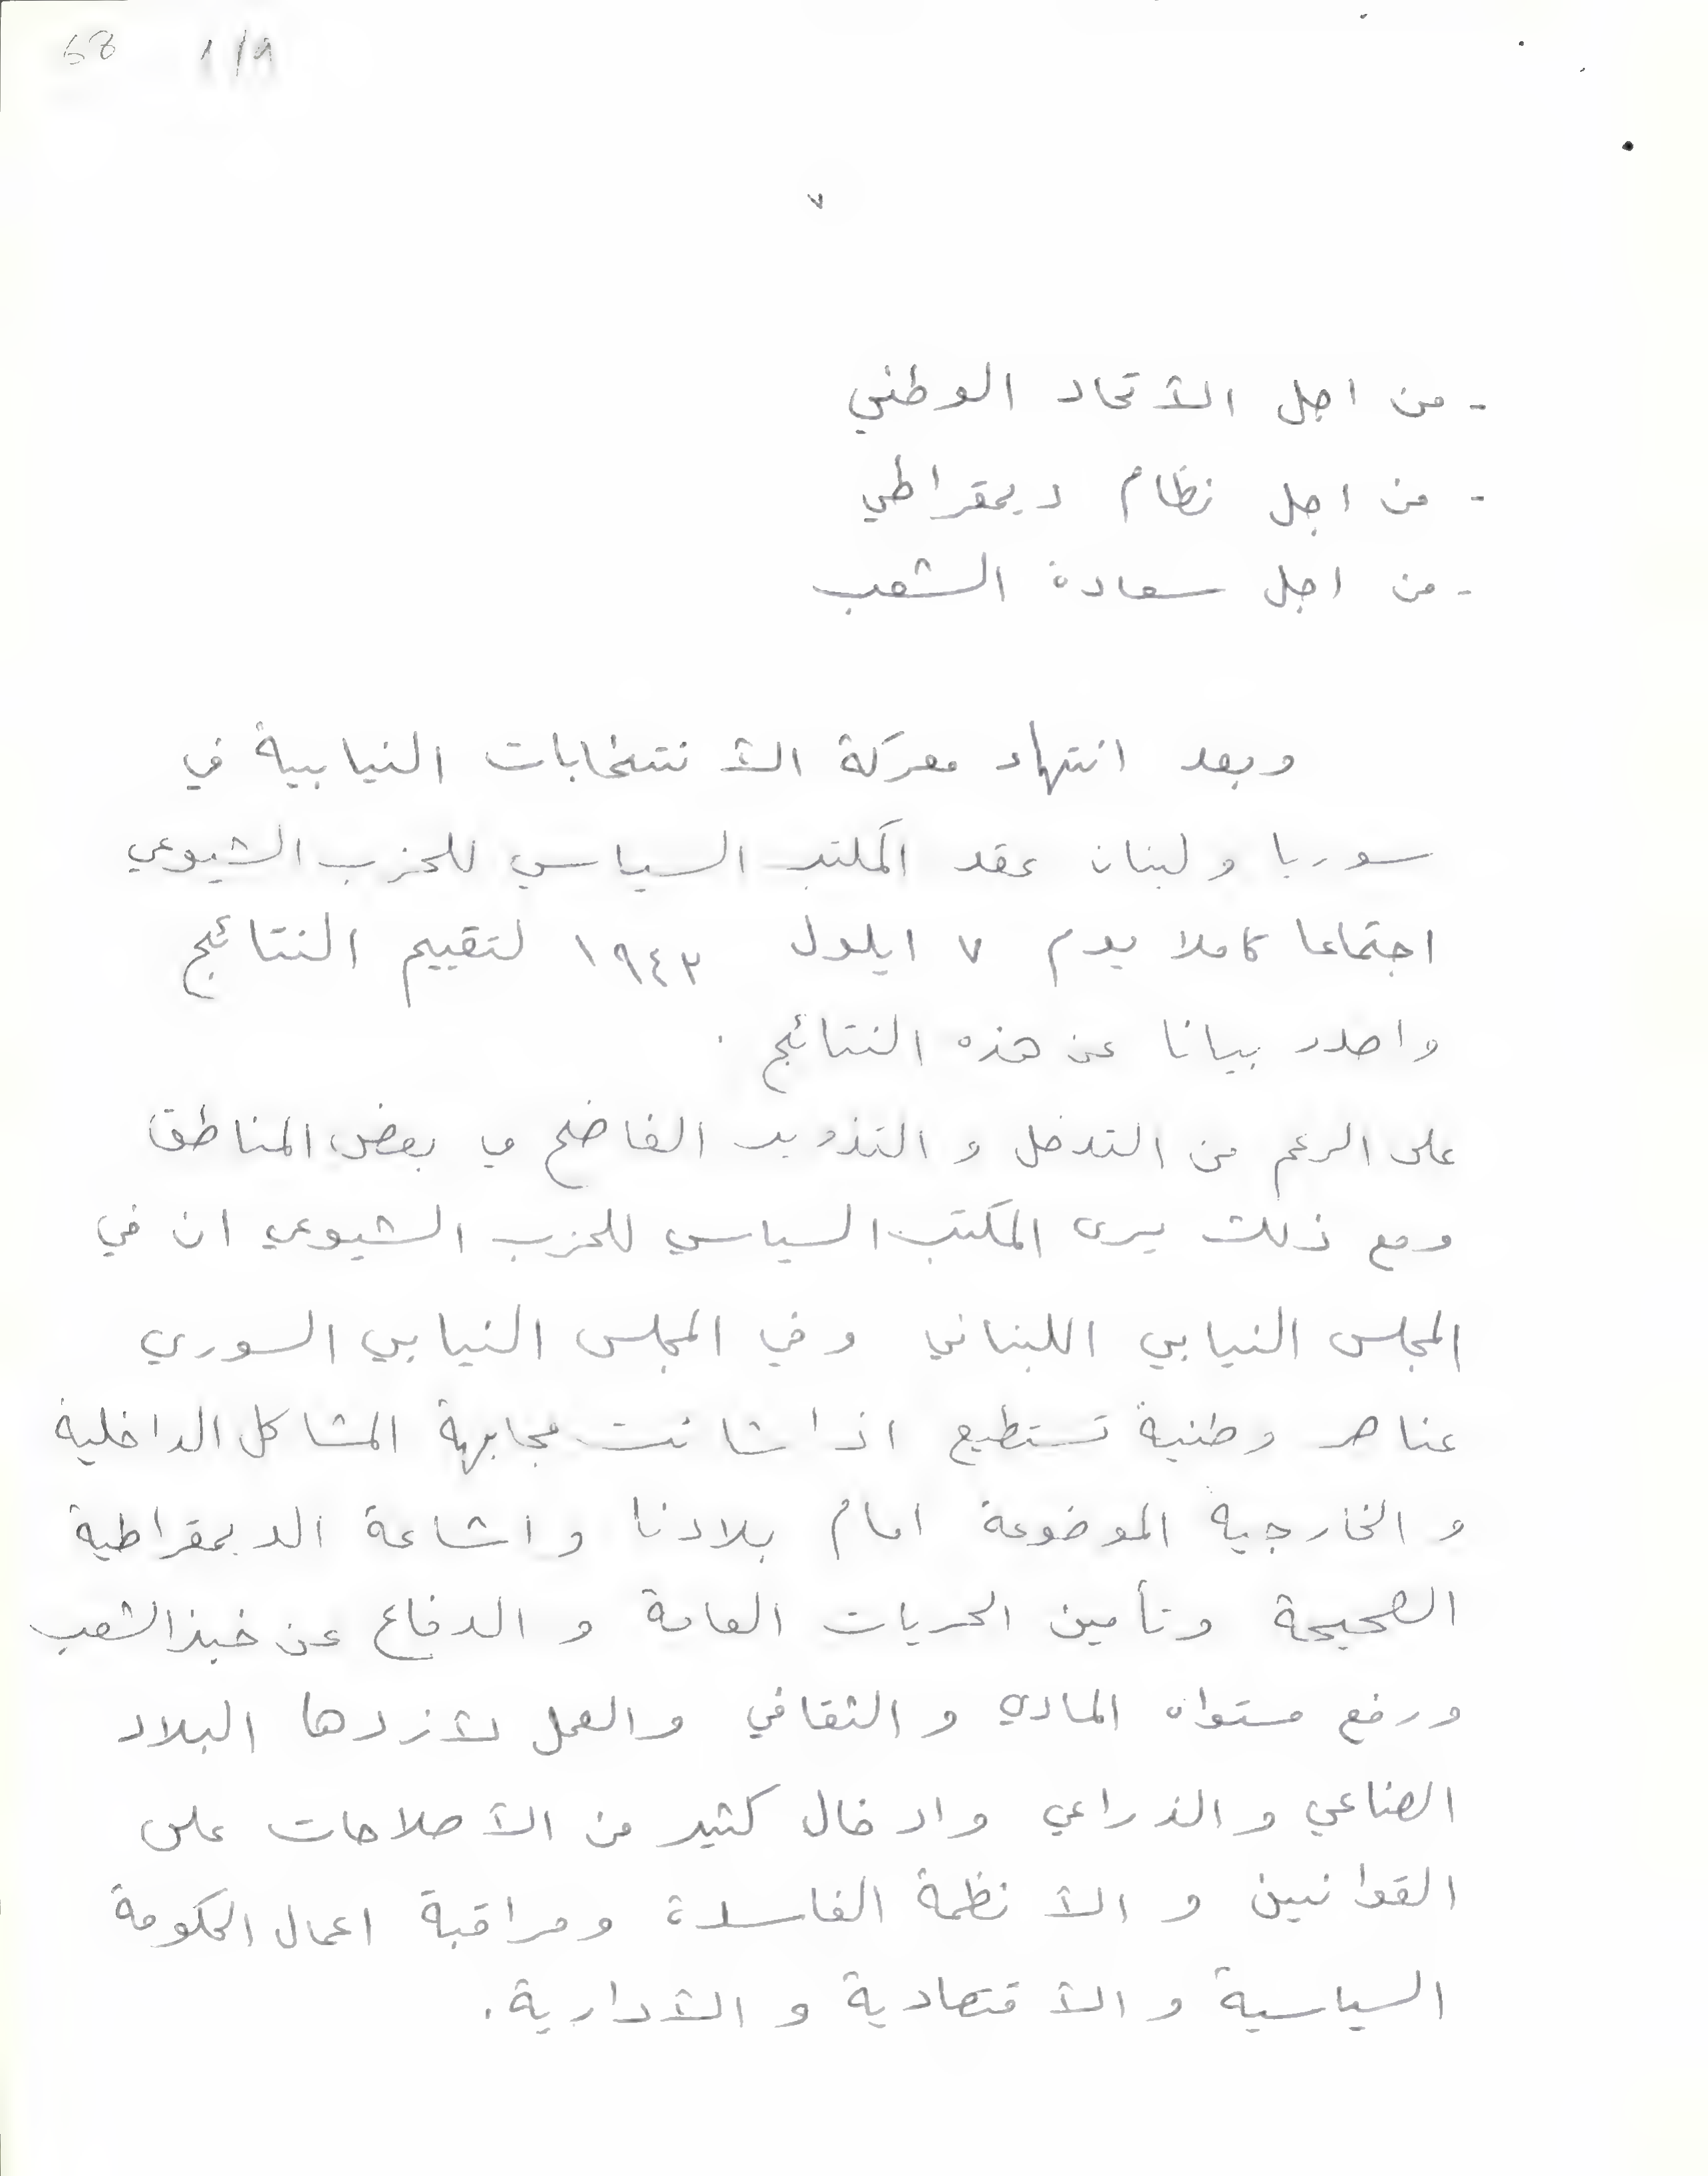 58 ١/٩
٧
- من اجل الأتحاد الوطني
- من اجل نظام ديمقراطي
- من اجل سعادة الشعب
وبعد انتهاء معركة الأنتخابات النيابية في
سوريا ولبنان عقد المكتب السياسي للحزب الشيوعي
اجتماعا كاملا يوم ٧ ايلول ١٩٤٣ لتقييم النتائج
واصدر بيانا عن هذه النتائج .
على الرغم من التدخل والتزوير الفاضح في بعض المناطق
ومع ذلك يرى المكتب السياسي للحزب الشيوعي ان في
المجلس النيابي اللبناني وفي المجلس النيابي السوري
عناصر وطنية تستطيع اذا شائت مجابهة المشاكل الداخلية
والخارجية الموضوعة امام بلادنا واشاعة الديمقراطية
الصحيحة وتأمين الحريات العامة والدفاع عن خبز الشعب
ورفع مستواه المادي والثقافي والعمل لأزدها البلاد
الصناعي والزراعي وادخال كثير من الأصلاحات على
القوانين والأنظمة الفاسدة ومراقبة اعمال الحكومة
السياسية والأقتصادية والأدارية.